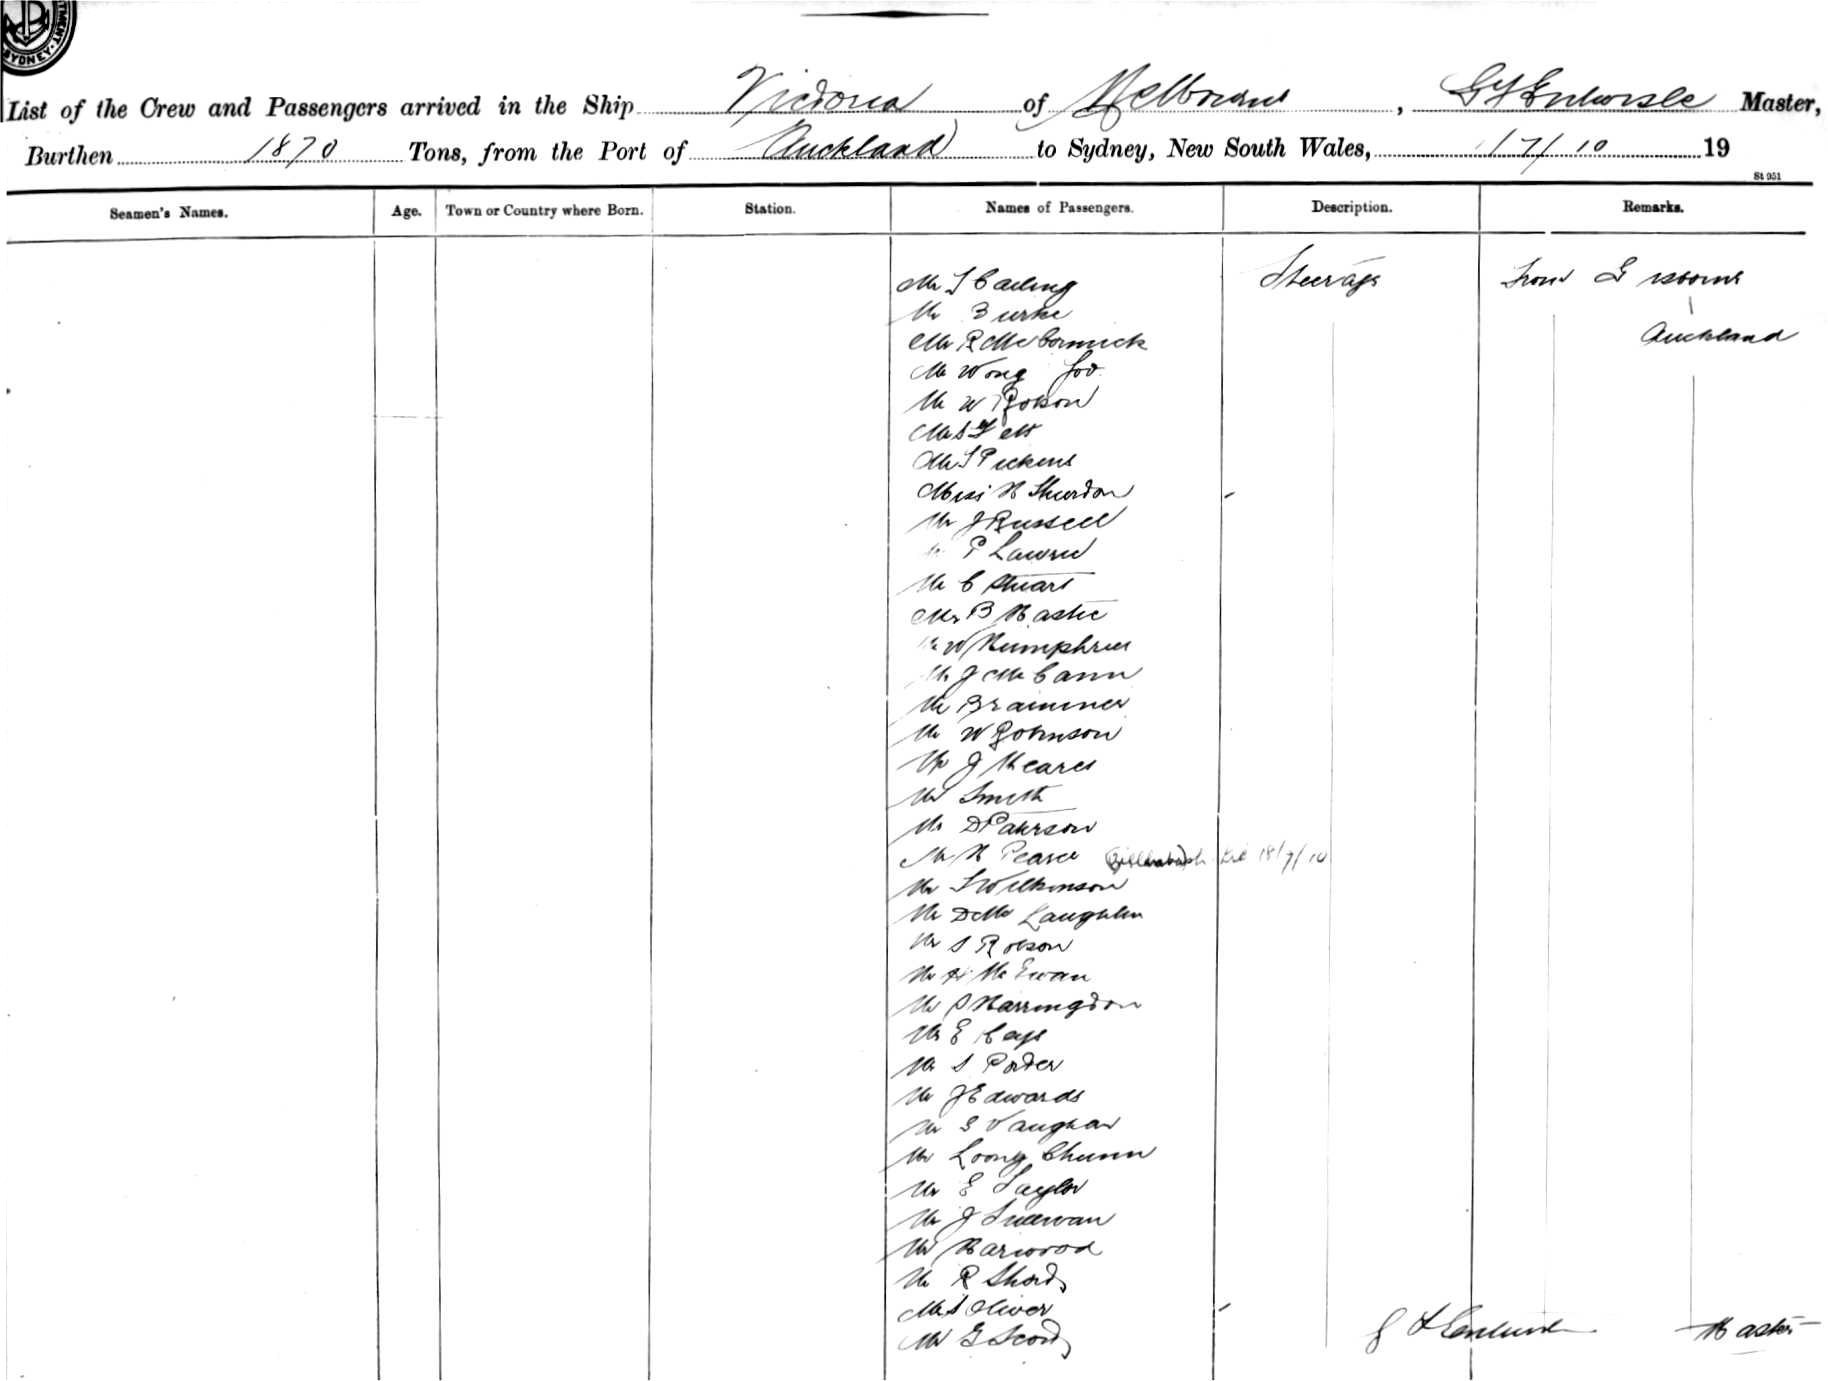 SYDNEY
List of the Crew and Passengers arrived in the Ship Victoria of Melbourne, Master,
Burthen 1870 Tons, from the Port of Auckland to Sydney, New South Wales, 17/10 19
St 951
Seamen's Names. Age. Town or Country where Born. Station. Names of Passengers. Description. Remarks.
Mr Steerage From Gisborne
Mr Burke
Auckland
Mr R McCormick
Mr Wong
Mr W Robson
Mr S Pickens
Miss H
Mr J Russell
P Lawrie
Mr C Stuart
Mr B Hastie
Mr W Humphries
Mr J McCann
Mr
Mr W Johnson
Mr J Meares
Mr Smith
Mr D Paterson
Mr H Pearce 18/7/10
Mr Wilkinson
Mr D McLaughlin
Mr S Robson
Mr H McEwan
Mr S Harringdon
Mr E Cays
Mr S Porter
Mr J Edwards
Mr Vaughan
Mr Loong Chunn
Mr E Taylor
Mr J Sullivan
Mr Harwood
Mr R Short
Mrs Oliver
Mr G Scott Master